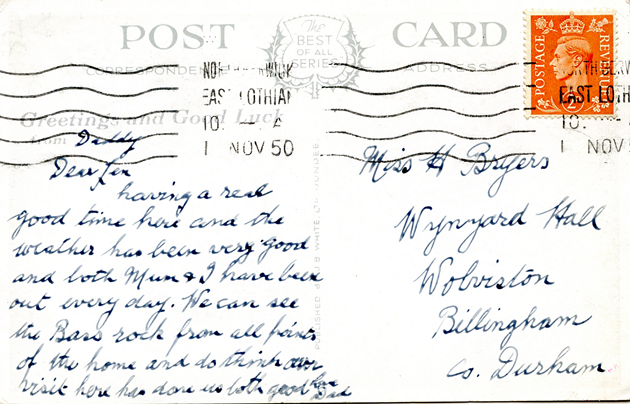 POST CARD
The
BEST
OF ALL
SERIES
CORRESPONDENCE
ADDRESS
POSTAGE REVENUE
NORTH BERWICK
EAST LOTHIAN
10. – A
1 NOV 50
NORTH BERW
EAST LOTH
10. –
1 NOV 5
Greetings and Good Luck
from Daddy
Dear
having a real
good time here and the
weather has been very good
and both Mum & I have been
out every day. We can see
the Bass rock from all points
of the home and do think our
visit here has done us both good
love
Dad
Miss H Bryers
Wynyard Hall
Wolviston
Billingham
Co. Durham